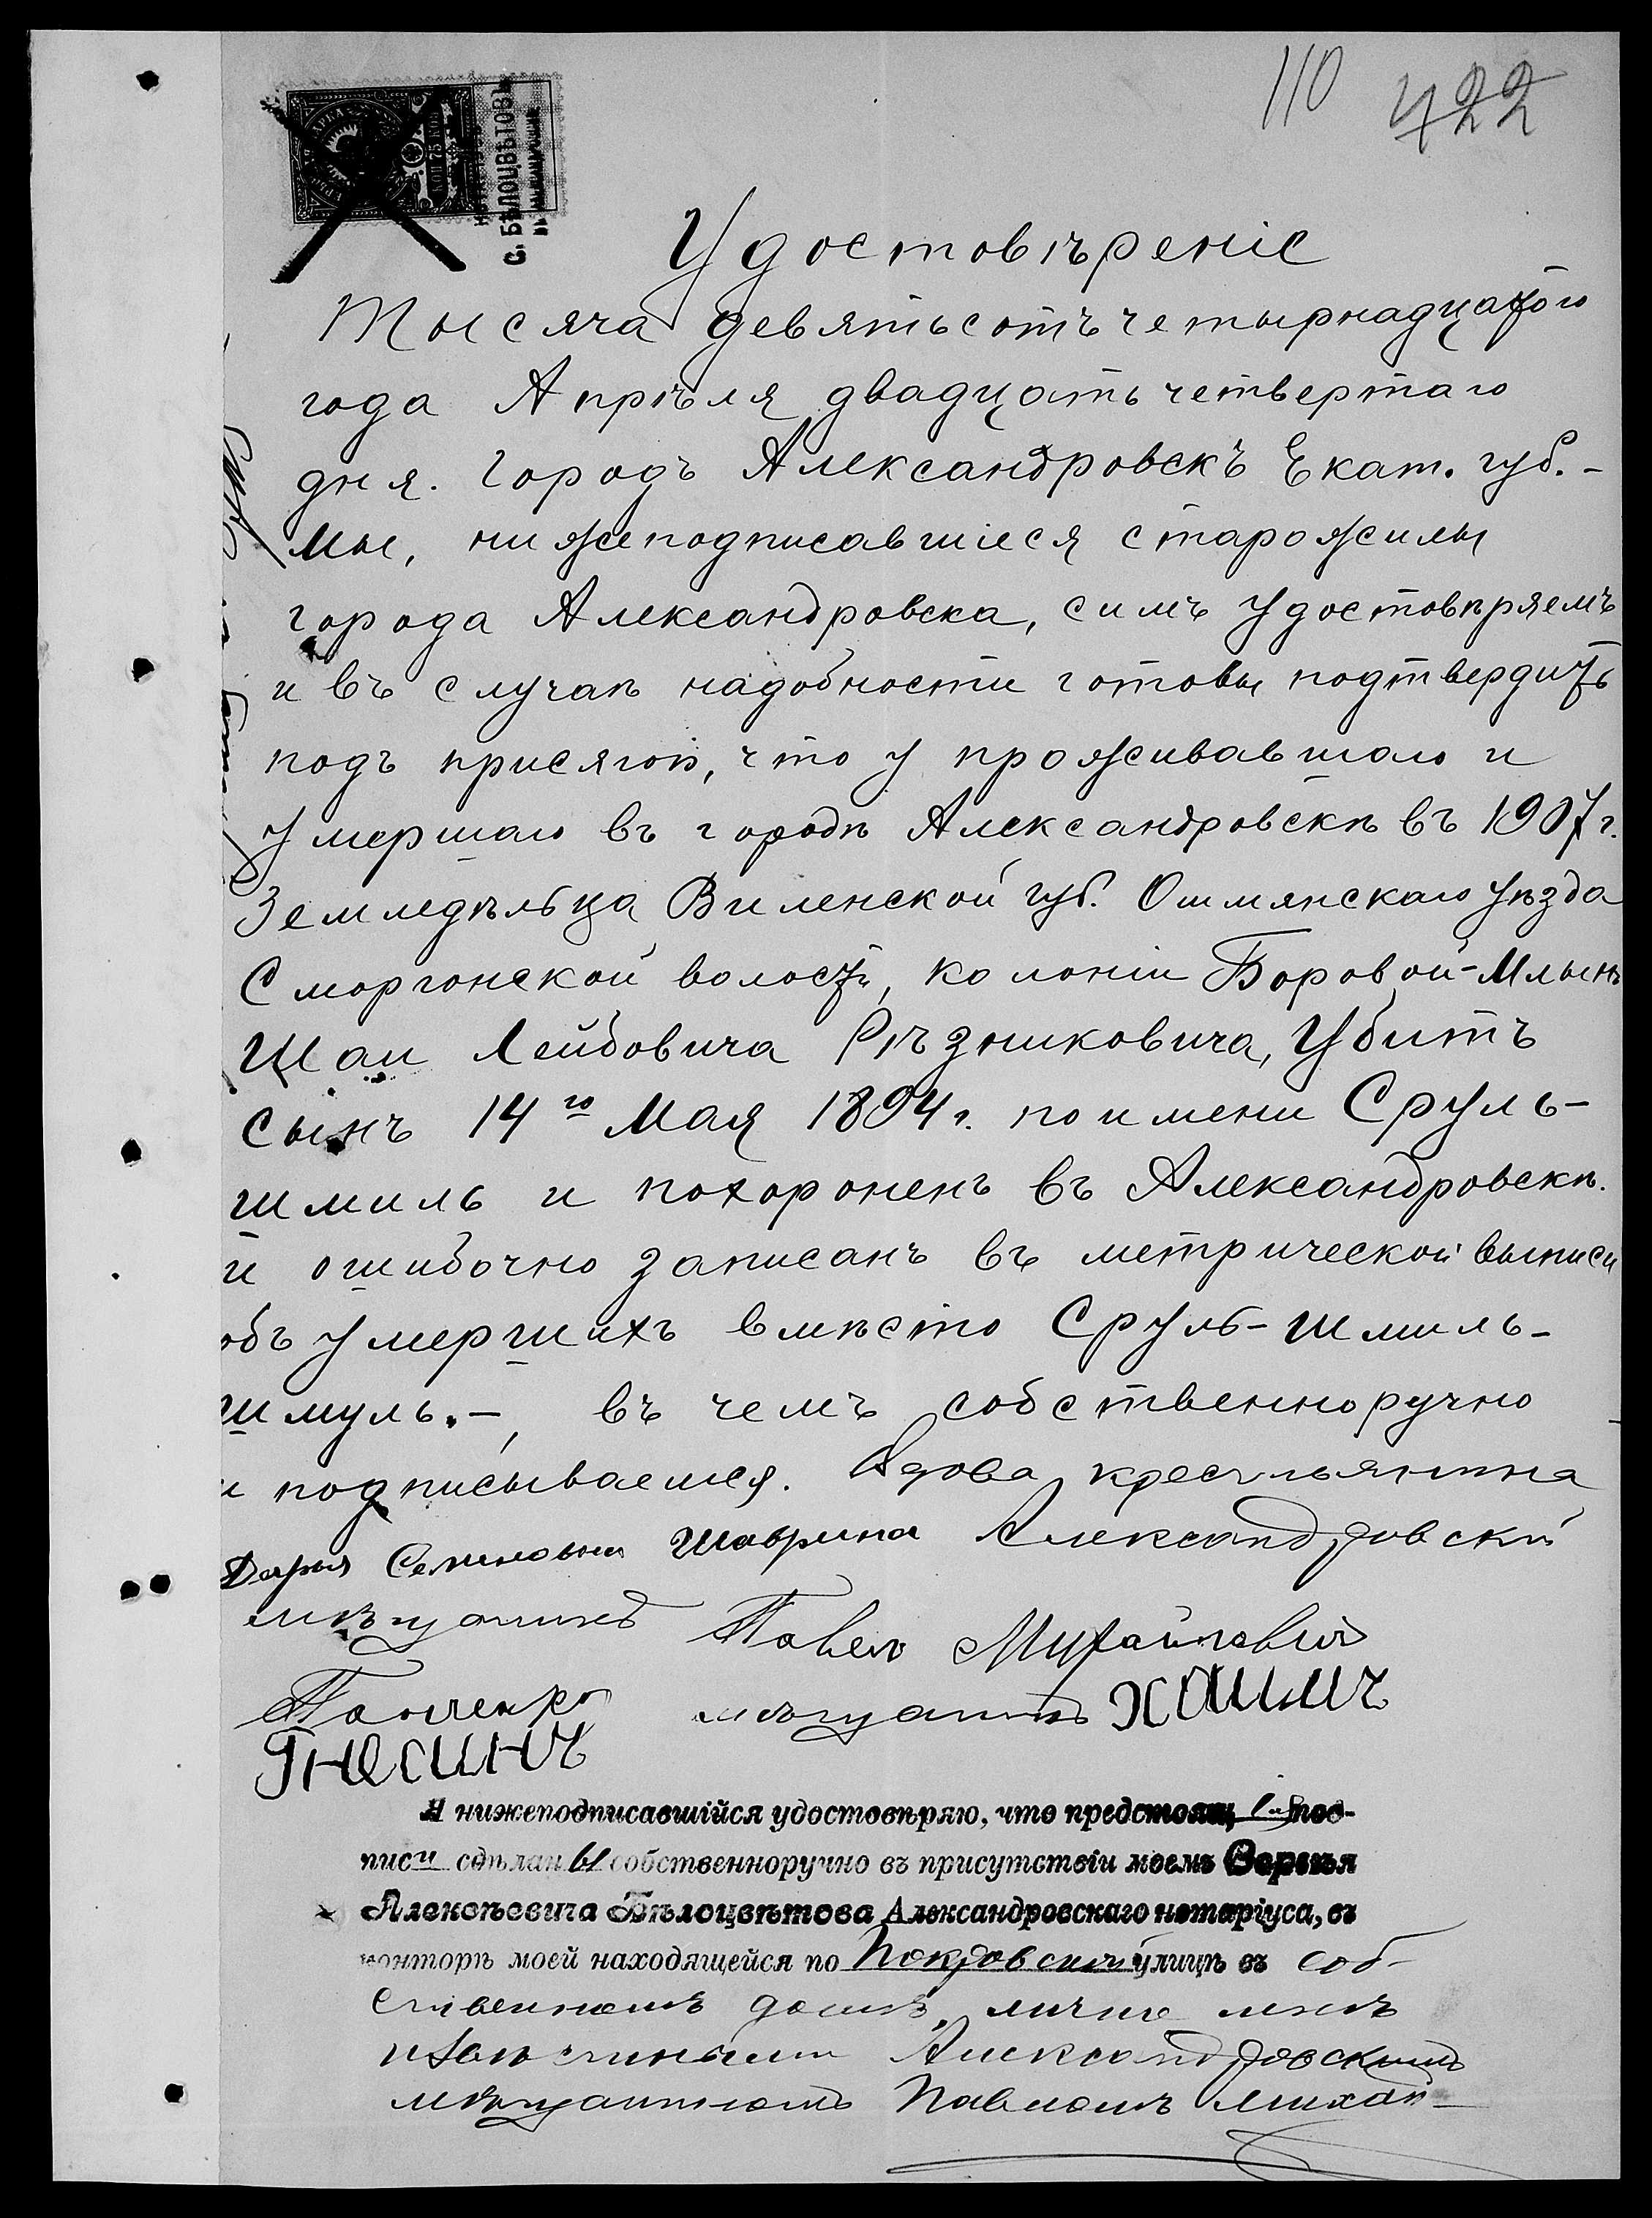 110 422
КОП 75 КОП
С. БѢЛОЦВѢТОВЪ
Удостовѣреніе
Тысяча девятьсотъ четырнадцатого
года Апрѣля двадцать четвертаго
дня. Городъ Александровскъ Екат. губ. -
Мы, нижеподписавшіеся старожилы
города Александровска, симъ удостовѣряемъ
и въ случаѣ надобности готовы подтвердить
подъ присягой, что у проживавшаго и
умершаго въ городѣ Александровскѣ въ 1907 г.
Земледѣльца Виленской губ. Ошмянскаго уѣзда
Сморгонской волости, колоніи Боровой-Млынъ
Шаи Лейбовича Рѣзниковича, Убитъ
сынъ 14го Мая 1894 г. по имени Сруль-
шмиль и похороненъ въ Александровскѣ.
и ошибочно записанъ въ метрической выписи
объ умершихъ вмѣсто Сруль-шмиль-
шмуль. -, въ чемъ собственноручно
и подписываемся. Вдова крестьянина
Дарья Семеновна Шаврина Александровскій
мѣщанинъ Павелъ Михайловичъ
Панченко мѣщанинъ Хаимъ
Гнесинъ
Я нижеподписавшійся удостовѣряю, что предстоящія под-
писи сдѣланы собственноручно въ присутствіи моемъ Сергѣя
Алексѣевича Бѣлоцвѣтова Александровскаго нотаріуса, въ
конторѣ моей находящейся по Покровской улицѣ въ соб-
ственномъ домѣ, лично мнѣ
извѣстными Александровскимъ
мѣщаниномъ Павломъ Михай-